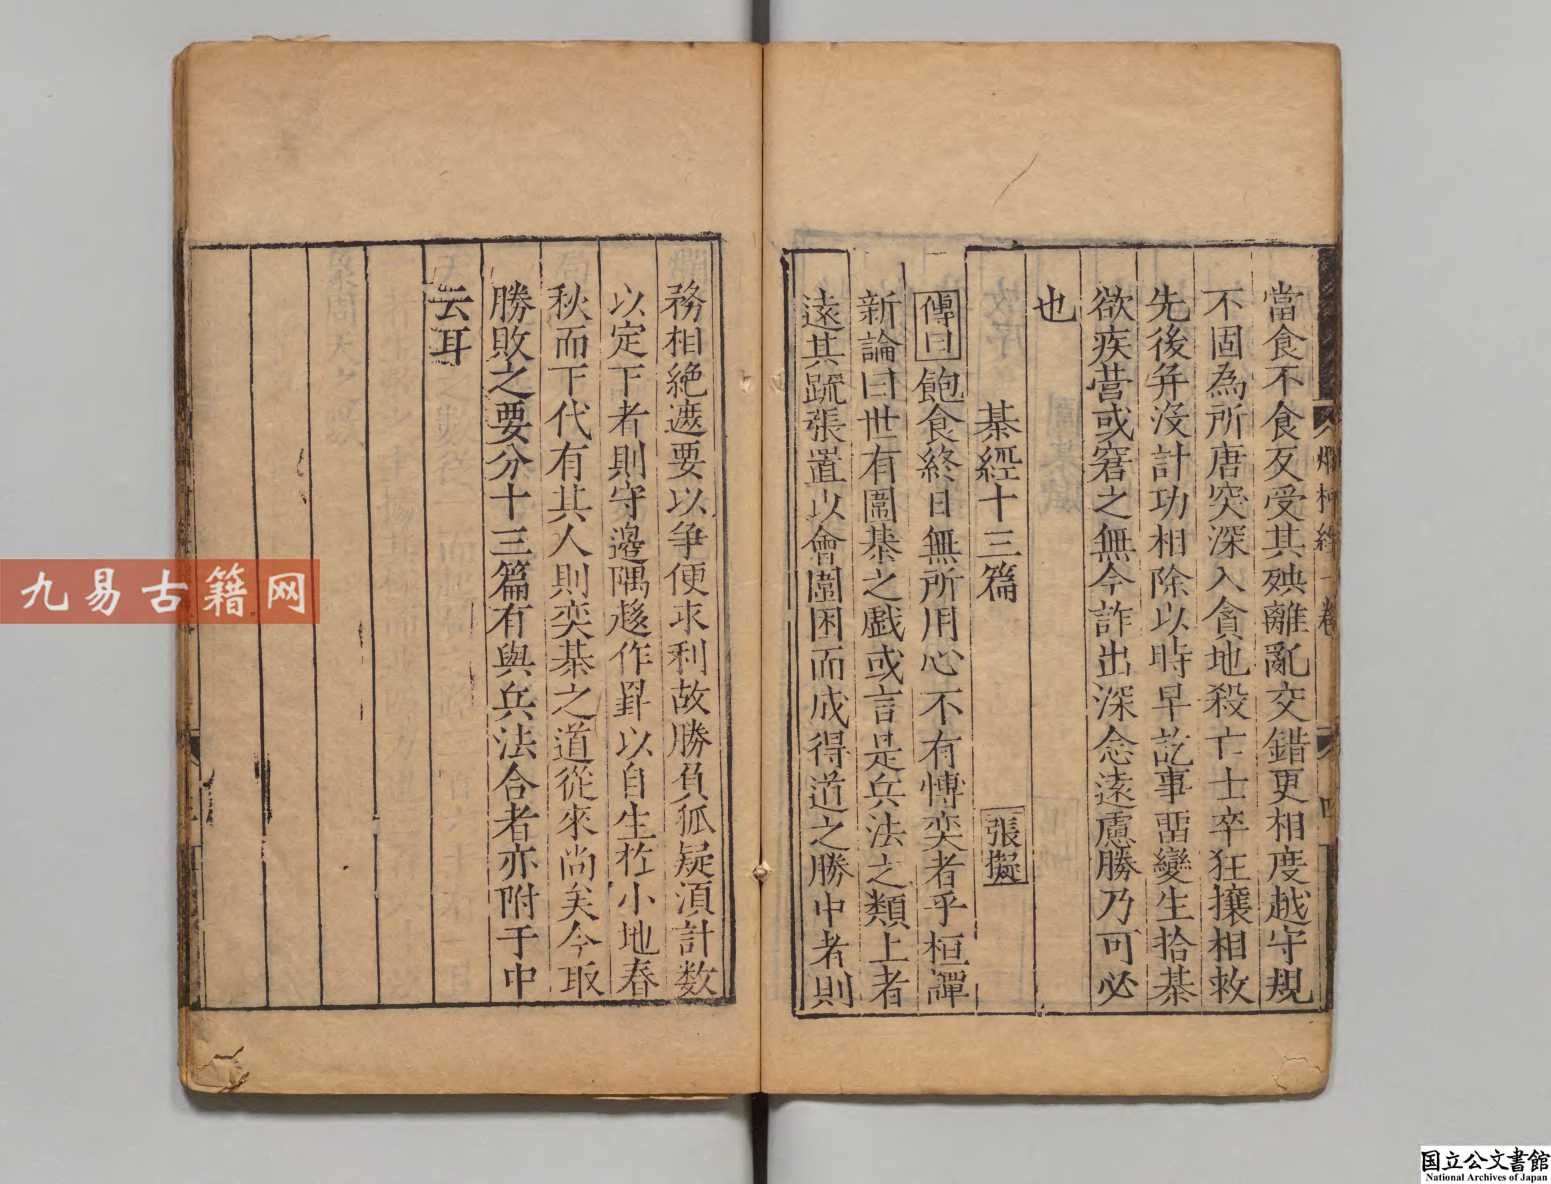 當食不食反受其殃離亂交錯更相度越守規
不固為所唐突深入貪地殺亡士卒狂攘相救
先後并沒計功相除以時早訖事留變生拾棊
欲疾營或窘之無令詐出深念遠慮勝乃可必
也
棊經十三篇
張擬
傳曰飽食終日無所用心不有博奕者乎桓譚
新論曰世有圍棊之戲或言是兵法之類上者
遠其疏張置以會圍困而成得道之勝中者則
務相絕遮要以爭便求利故勝負狐疑須計數
以定下者則守邊隅趍作罫以自生於小地春
秋而下代有其人則奕棊之道從來尚矣今取
勝敗之要分十三篇有與兵法合者亦附于中
云耳
爛柯經 一卷
四
九易古籍网
国立公文書館
National Archives of Japan